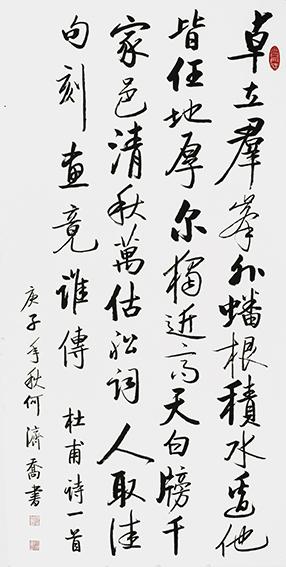 卓立羣峯外蟠根積水邊他
皆任地厚尔獨近高天白牓千
家邑清秋萬估舩詞人取佳
句刻畫竟誰傳 杜甫詩一首
庚子年秋何濟喬書